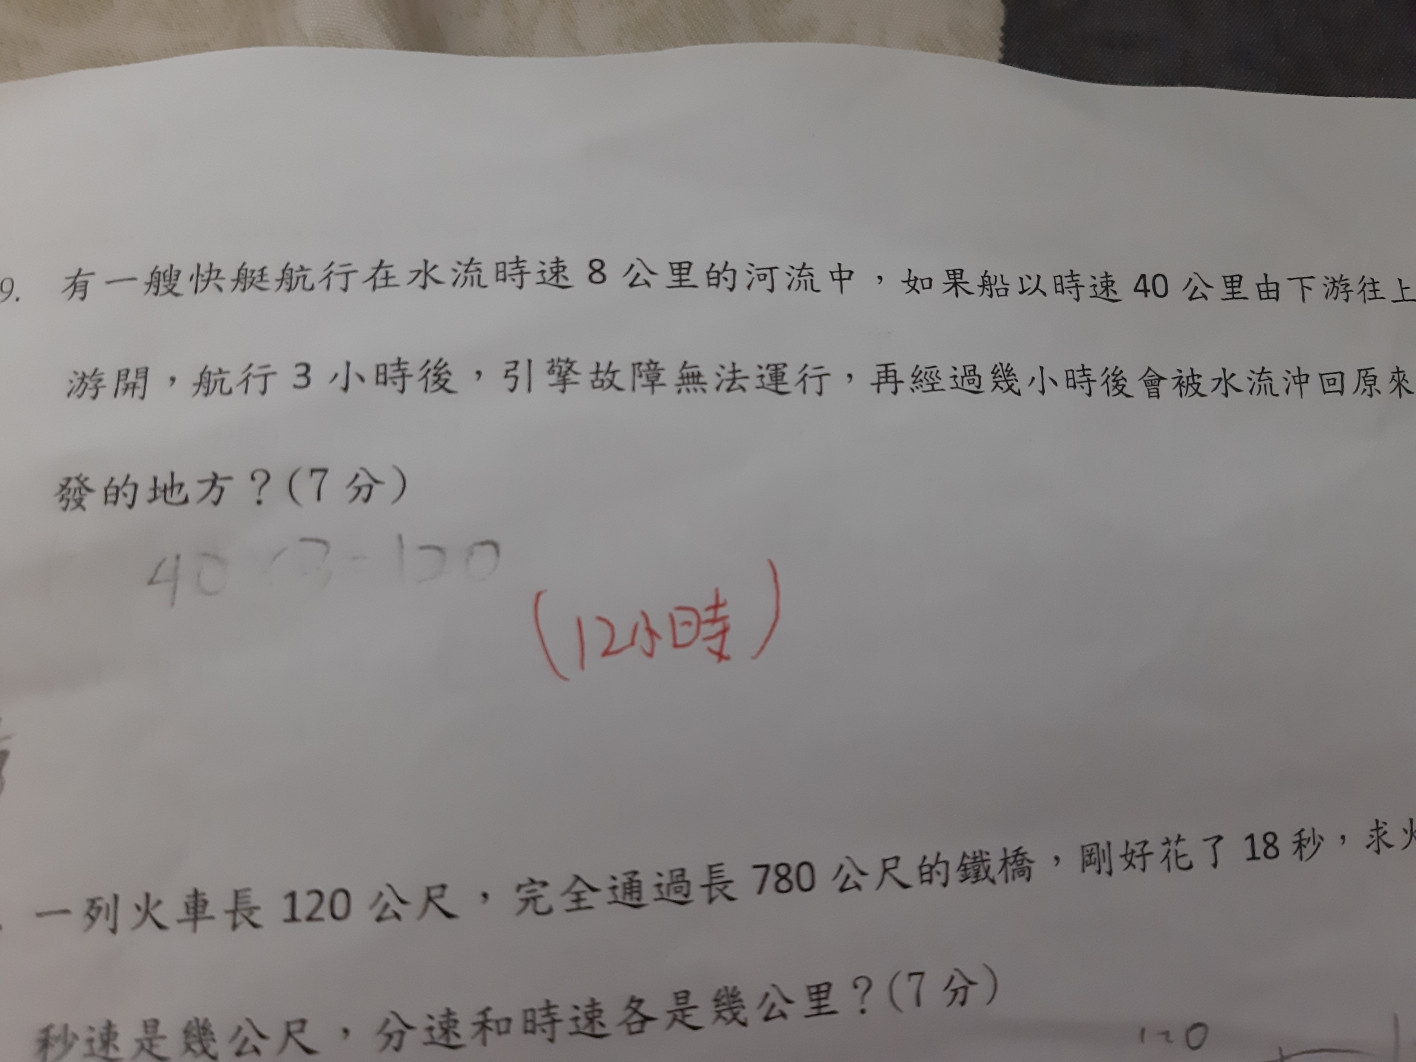 9. 有一艘快艇航行在水流時速 8 公里的河流中，如果船以時速 40 公里由下游往上
游開，航行 3 小時後，引擎故障無法運行，再經過幾小時後會被水流沖回原來
發的地方？(7 分)
40×3=120
(12小時)
一列火車長 120 公尺，完全通過長 780 公尺的鐵橋，剛好花了 18 秒，求火
秒速是幾公尺，分速和時速各是幾公里？(7 分)
120